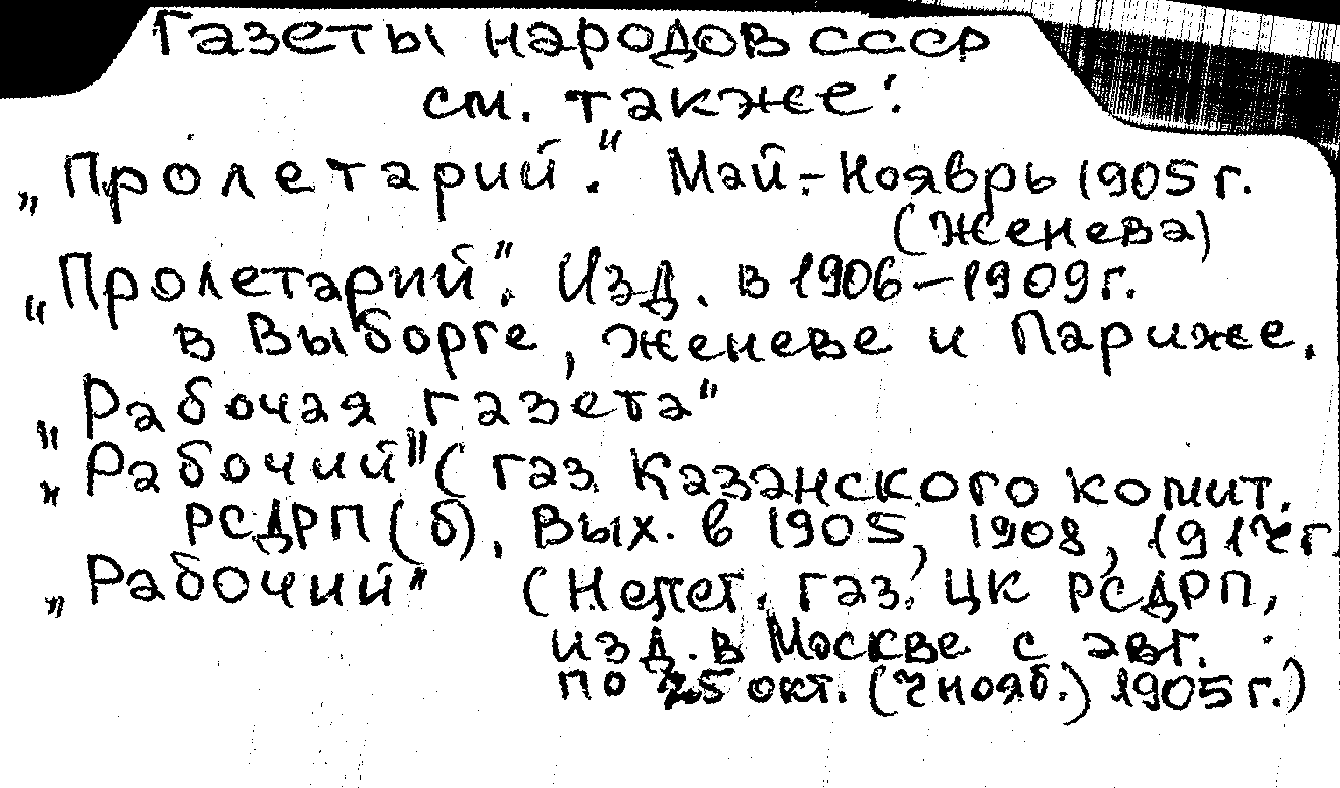 Газеты народов СССР
см. также:
„Пролетарий." Май.-Ноябрь 1905 г.
(Женева)
„Пролетарий". Изд. в 1906-1909 г.
в Выборге, Женеве и Париже.
„Рабочая газета"
„Рабочий" (газ. Казанского комит.
РСДРП(б), Вых. в 1905, 1908, 1917 г.
„Рабочий" (Нелег. газ. ЦК РСДРП,
изд. в Москве с авг.
по 25 окт. (7 нояб.) 1905 г.)